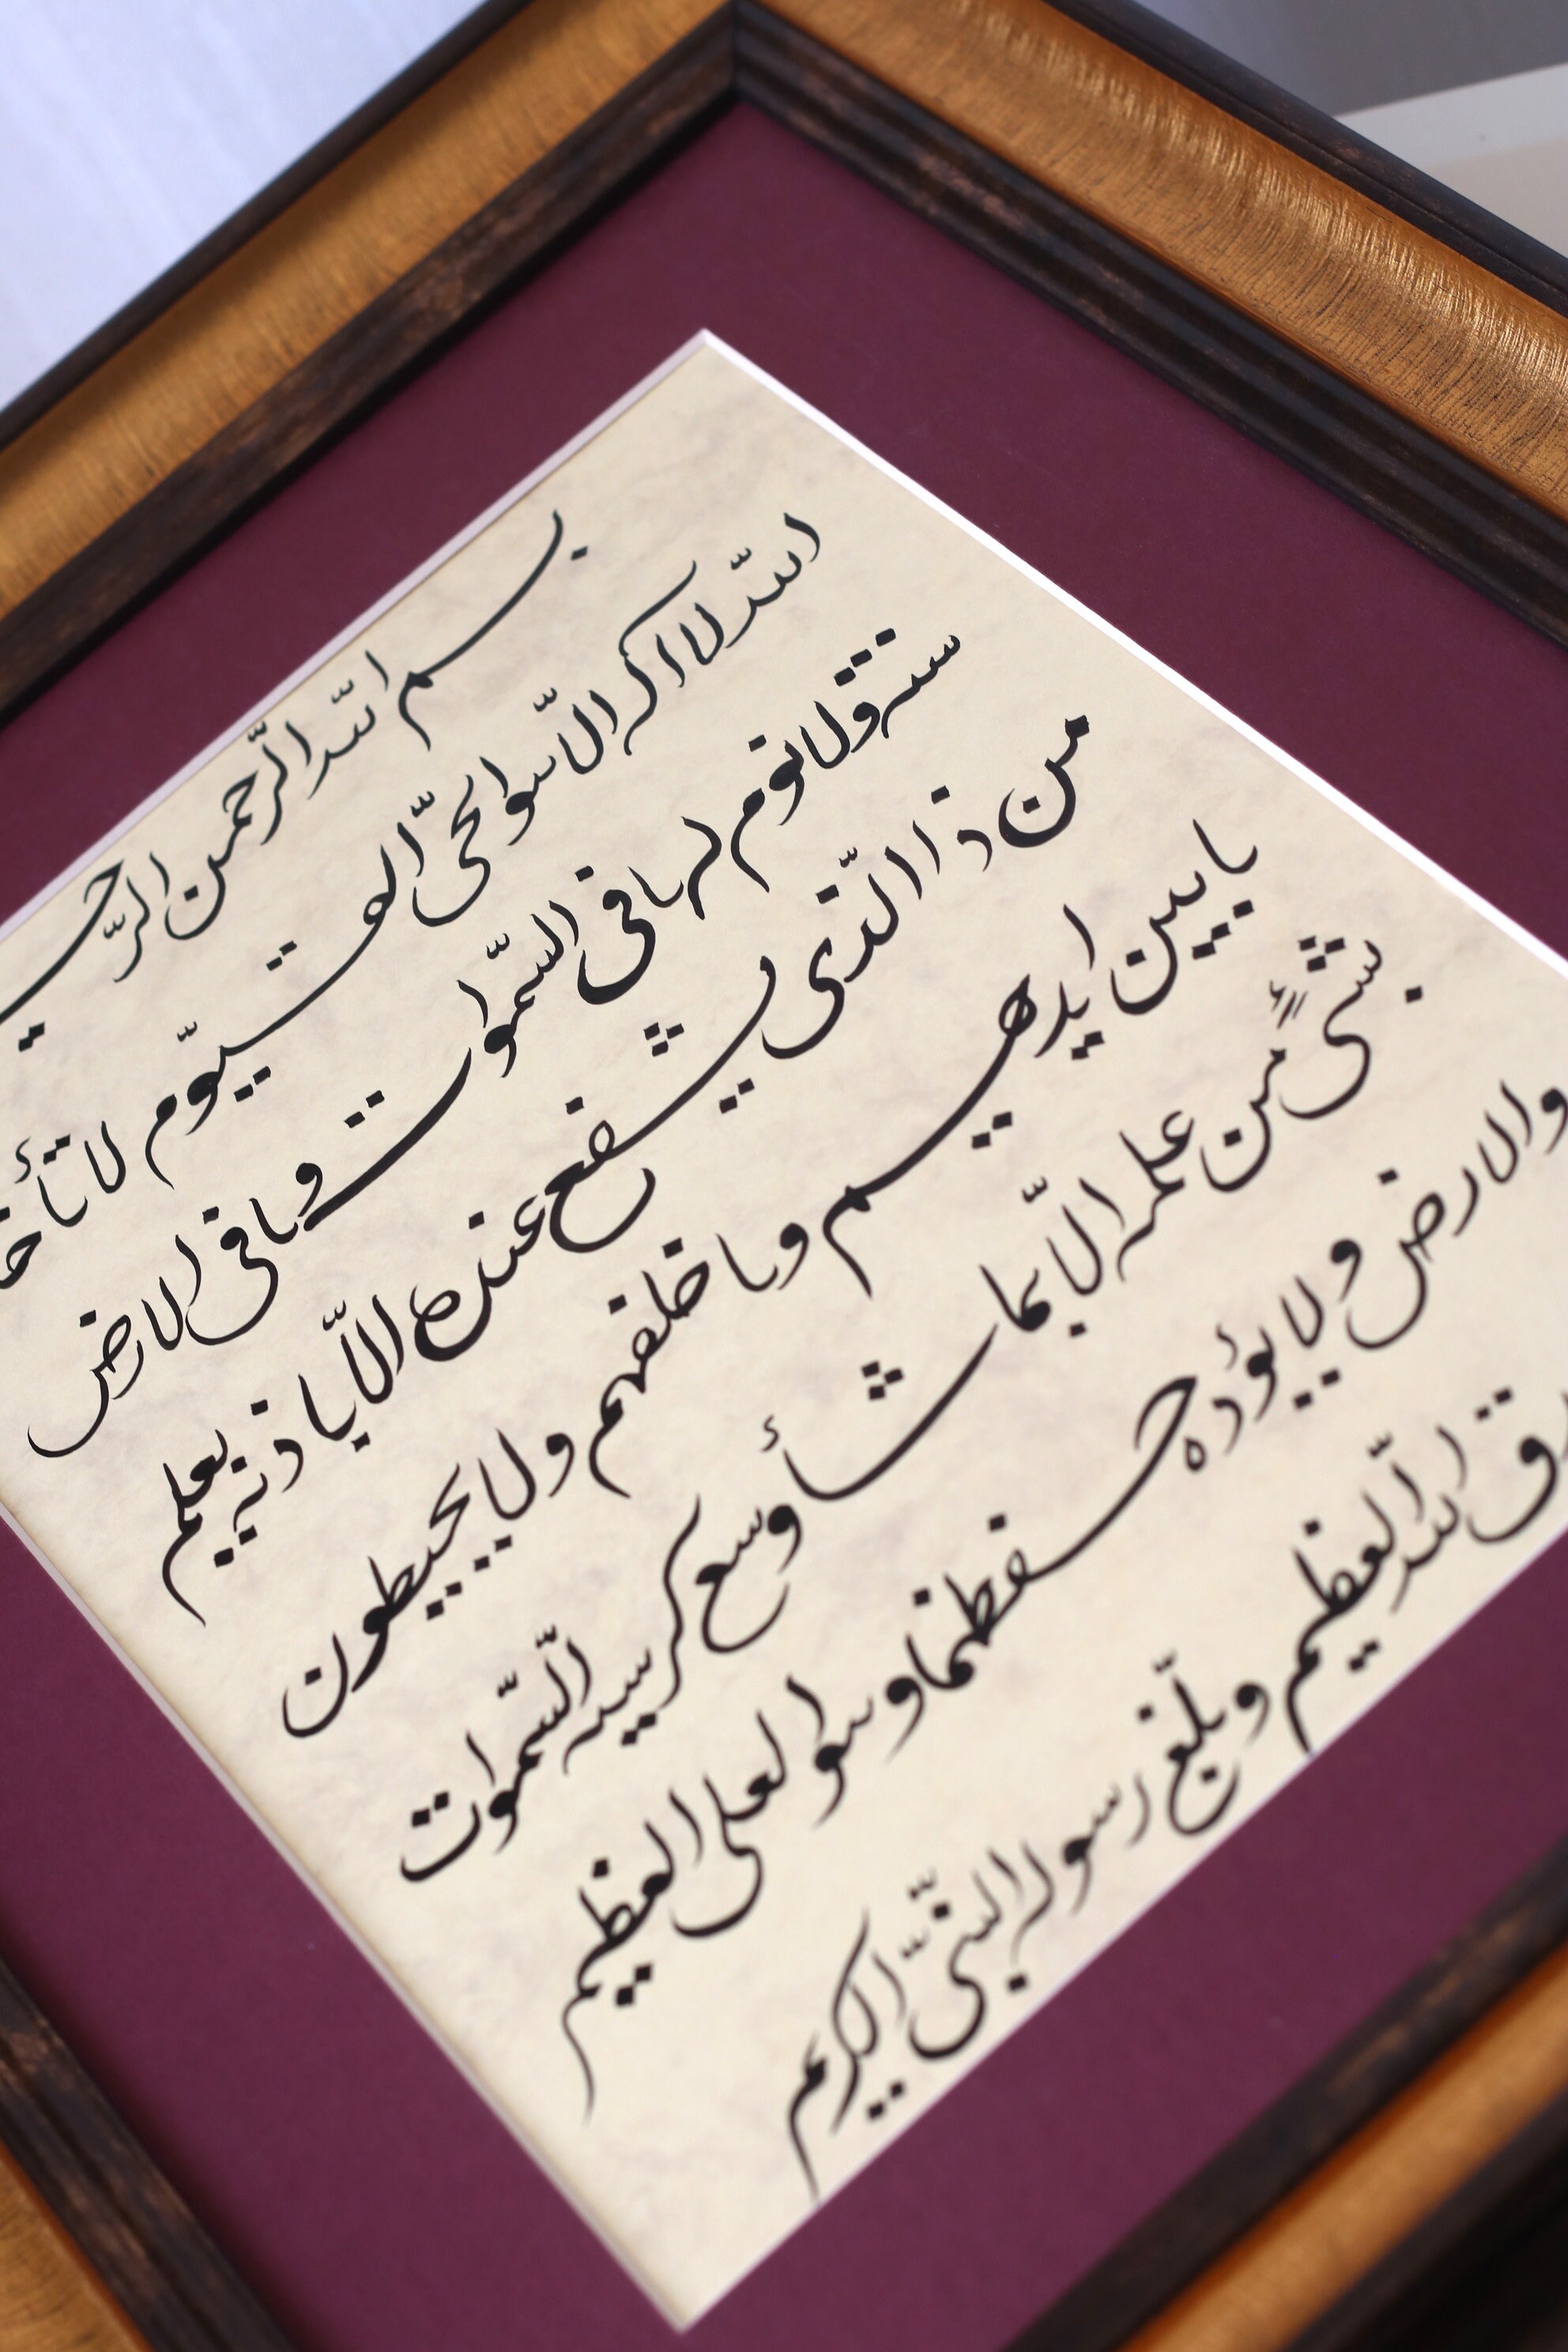 بسم الله الرّحمن الرّحيـ
الله لا اله الّا هو الحیّ القیّوم لا تأخـ
سنة ولا نوم له ما فی السّموات وما فی الارض
من ذا الّذی یشفع عنده الّا باذنه یعلم
ما بین ایدیهم وما خلفهم ولا یحیطون
بشیءٍ من علمه الّا بما شأ وسع کرسیه السّموات
والارض ولا یؤده حفظهما وهو العلی العظیم
الله العظیم و بلّغ رسوله النّبیّ الکریم